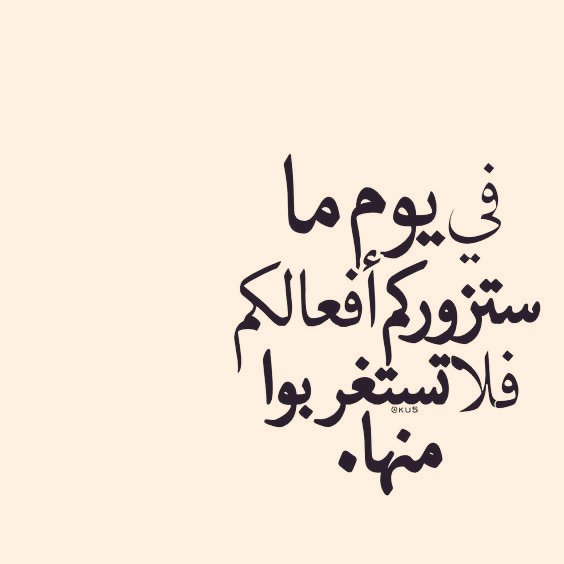 في يوم ما
ستزوركم أفعالكم
فلا تستغربوا
@KU5
منها.